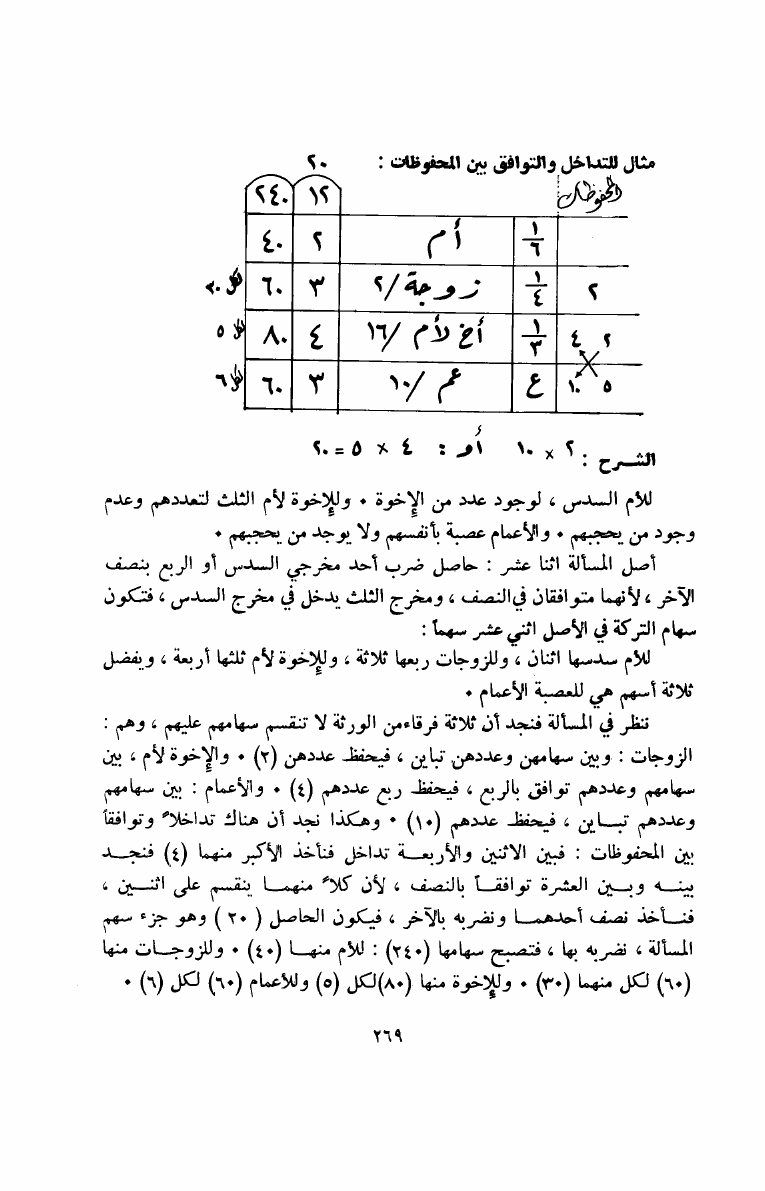 مثال للتداخل والتوافق بين المحفوظات : ٢٠
المحفوظات ١٢ ٢٤٠
١/٦ أم ٢ ٤٠
٢ ١/٤ زوجة /٢ ٣ ٦٠ لكل ٣٠
٢ ٤ ١/٣ أخ لأم /١٦ ٤ ٨٠ لكل ٥
٥ ١٠ ع عم /١٠ ٣ ٦٠ لكل ٦
الشرح : ٢ × ١٠ أو : ٤ × ٥ = ٢٠
للأم السدس ، لوجود عدد من الإخوة ٠ وللإخوة لأم الثلث لتعددهم وعدم
وجود من يحجبهم ٠ والأعمام عصبة بأنفسهم ولا يوجد من يحجبهم ٠
أصل المسألة اثنا عشر : حاصل ضرب أحد مخرجي السدس أو الربع بنصف
الآخر ، لأنهما متوافقان في النصف ، ومخرج الثلث يدخل في مخرج السدس ، فتكون
سهام التركة في الأصل اثني عشر سهماً :
للأم سدسها اثنان ، وللزوجات ربعها ثلاثة ، وللإخوة لأم ثلثها أربعة ، ويفضل
ثلاثة أسهم هي للعصبة الأعمام ٠
ننظر في المسألة فنجد أن ثلاثة فرقاء من الورثة لا تنقسم سهامهم عليهم ، وهم :
الزوجات : وبين سهامهن وعددهن تباين ، فيحفظ عددهن (٢) ٠ والإخوة لأم ، بين
سهامهم وعددهم توافق بالربع ، فيحفظ ربع عددهم (٤) ٠ والأعمام : بين سهامهم
وعددهم تبـــاين ، فيحفظ عددهم (١٠) ٠ وهكذا نجد أن هناك تداخلاً وتوافقاً
بين المحفوظات : فبين الاثنين والأربعـــة تداخل فنأخذ الأكبر منهما (٤) فنجـــد
بينـــه وبـــين العشرة توافقـــاً بالنصف ، لأن كلاً منهمـــا ينقسم على اثنـــين ،
فنـــأخذ نصف أحدهمـــا ونضربه بالآخر ، فيكون الحاصل ( ٢٠ ) وهو جزء سهم
المسألة ، نضربه بها ، فتصبح سهامها (٢٤٠) : للأم منهـــا (٤٠) ٠ وللزوجـــات منها
(٦٠) لكل منهما (٣٠) ٠ وللإخوة منها (٨٠) لكل (٥) وللأعمام (٦٠) لكل (٦) ٠
٢٦٩